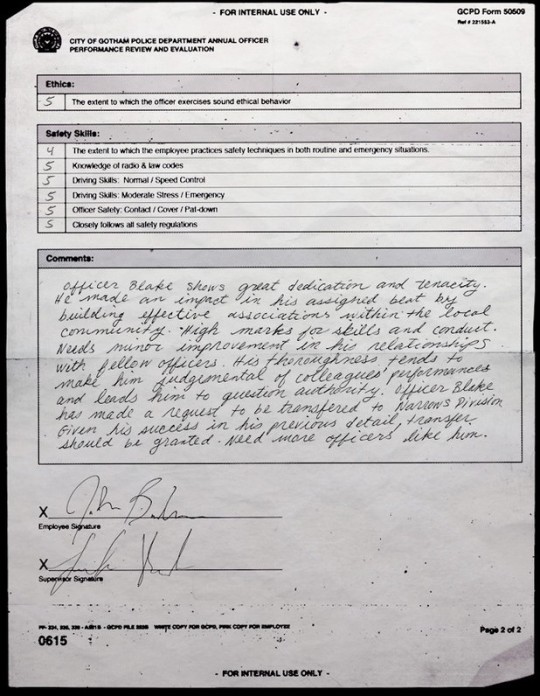 - FOR INTERNAL USE ONLY -
GCPD Form 50609
Ref # 221553-A
CITY OF GOTHAM POLICE DEPARTMENT ANNUAL OFFICER
PERFORMANCE REVIEW AND EVALUATION
Ethics:
5 The extent to which the officer exercises sound ethical behavior
Safety Skills:
4 The extent to which the employee practices safety techniques in both routine and emergency situations.
5 Knowledge of radio & law codes
5 Driving Skills: Normal / Speed Control
5 Driving Skills: Moderate Stress / Emergency
5 Officer Safety: Contact / Cover / Pat-down
5 Closely follows all safety regulations
Comments:
Officer Blake shows great dedication and tenacity.
He made an impact in his assigned beat by
building effective associations within the local
community. High marks for skills and conduct.
Needs minor improvement in his relationships
with fellow officers. His thoroughness tends to
make him judgimental of colleagues' performances
and leads him to question authority. Officer Blake
has made a request to be transfered to Narrows Division
Given his success in his previous detail, transfer
should be granted. Need more officers like him.
X
Employee Signature
X
Supervisor Signature
WHITE COPY FOR GCPD, PINK COPY FOR EMPLOYEE
Page 2 of 2
0615
- FOR INTERNAL USE ONLY -